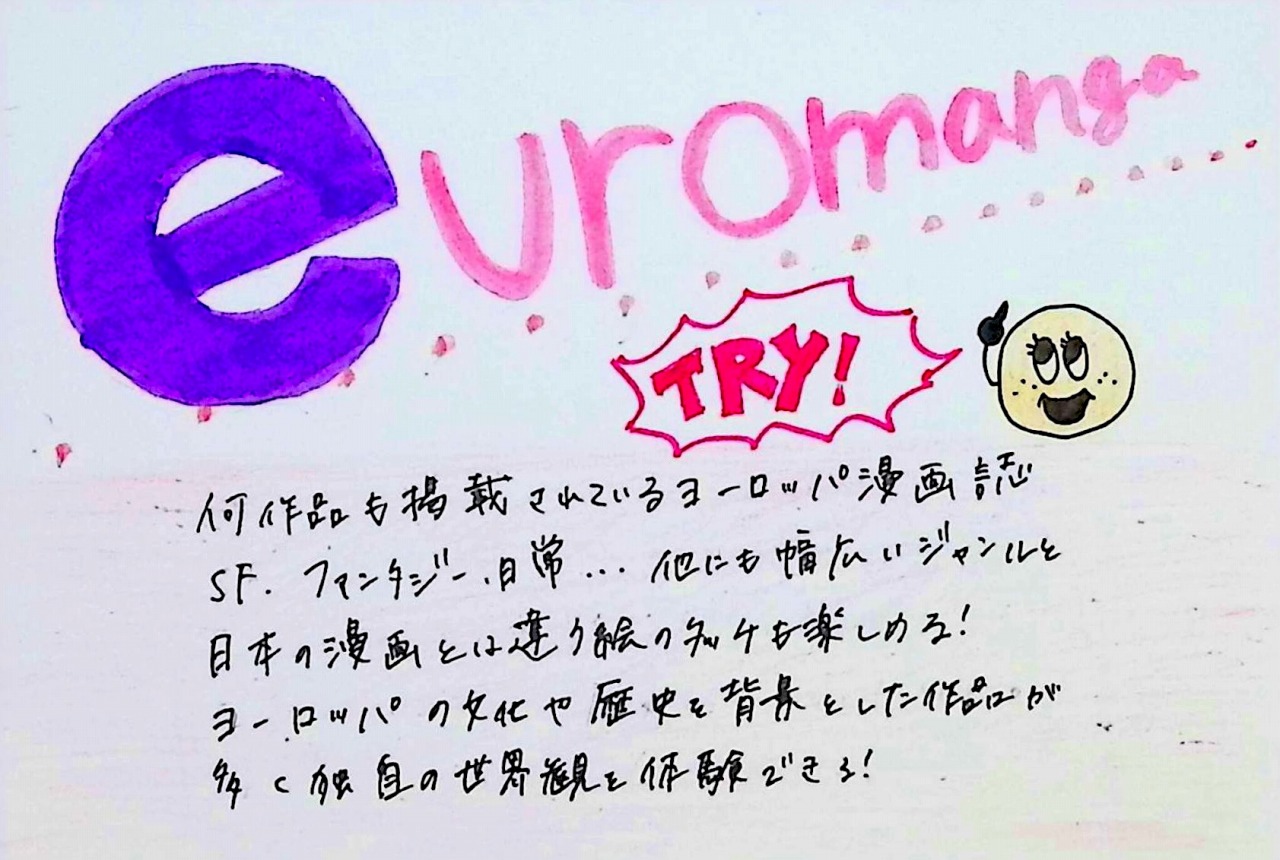 euromanga
TRY!
何作品も掲載されているヨーロッパ漫画誌
SF、ファンタジー、日常...他にも幅広いジャンルと
日本の漫画とは違う絵のタッチも楽しめる!
ヨーロッパの文化や歴史を背景とした作品が
多く独自の世界観を体験できる!